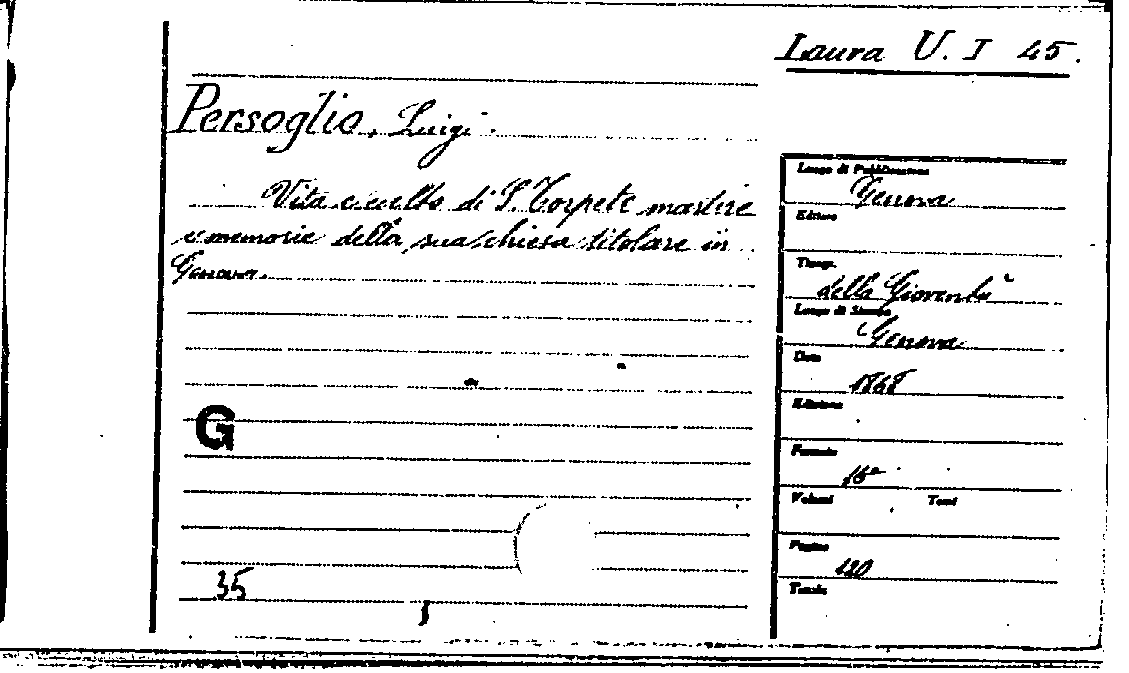 Laura U. I 45.
Persoglio, Luigi.
Vita e culto di S. Torpete martire
e memorie della sua chiesa titolare in
Genova.
Luogo di Pubblicazione
Genova
Editore
Tipogr.
della Gioventù
Luogo di Stampa
Genova
Data
1868
Edizione
Formato
16º
Volumi Tomi
Pagine
120
Tavole
G
35